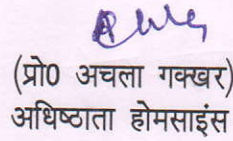 (प्रो0 अचला गक्खर)
अधिष्ठाता होमसाइंस